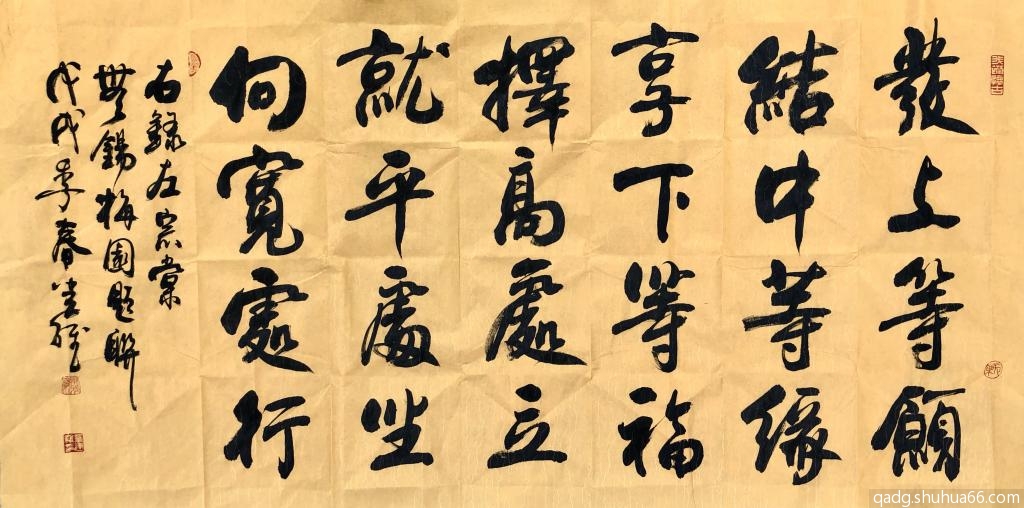 發上等願
結中等緣
享下等福
擇高處立
就平處坐
向寬處行
右錄左宗棠
無錫梅園題聯
戊戌季春
qadg.shuhua66.com